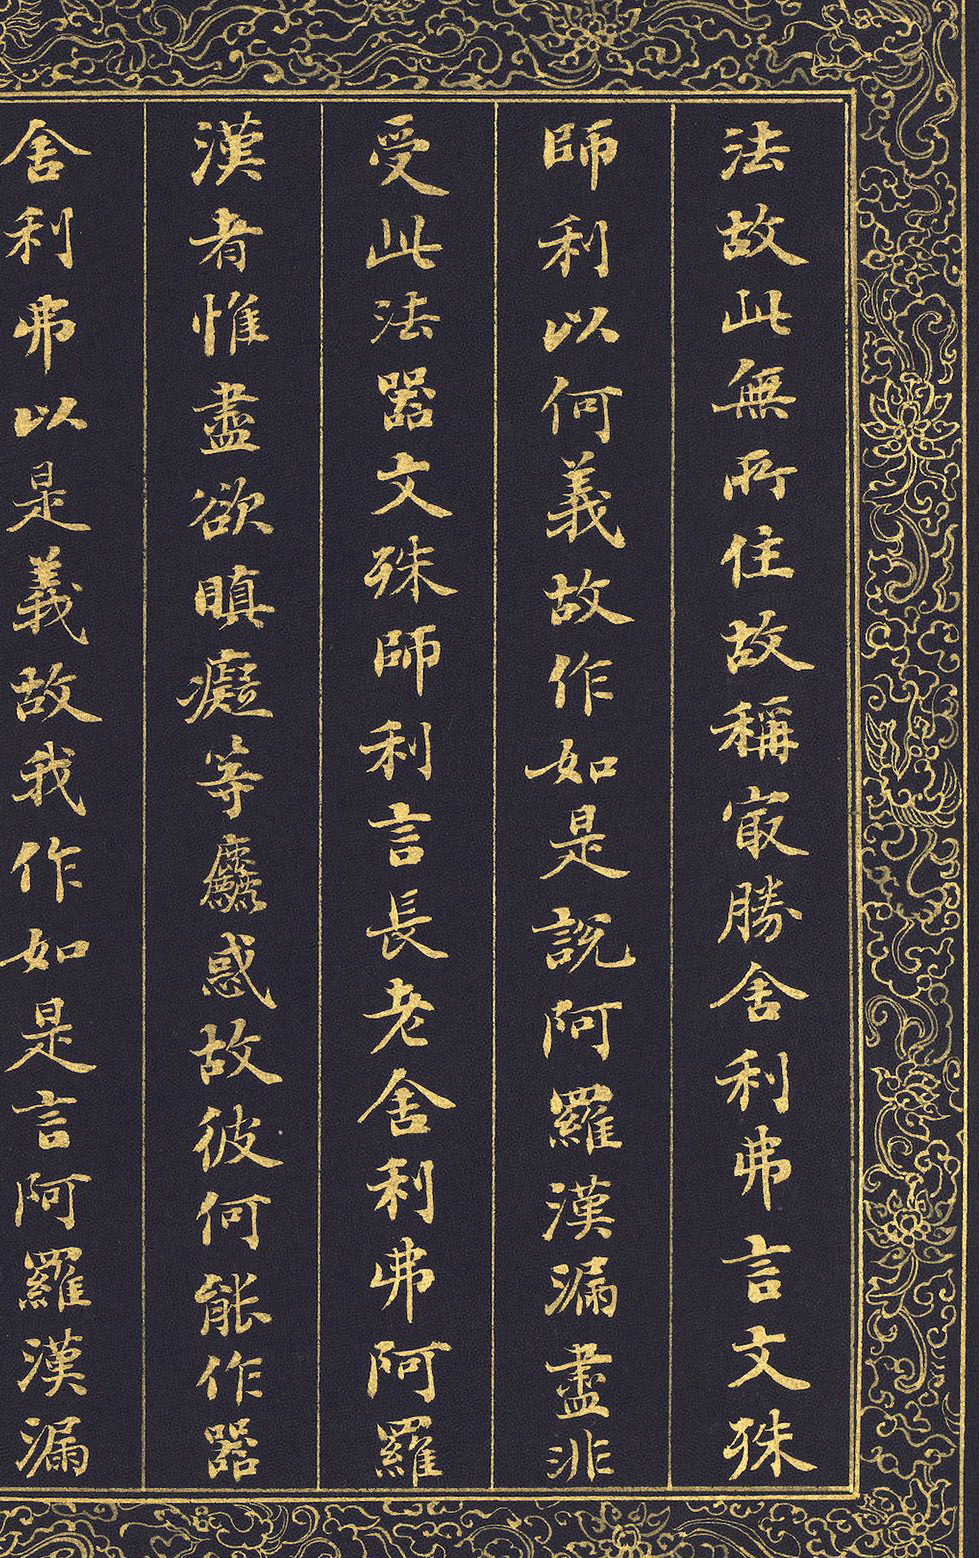 法故此無所住故稱冣勝舍利弗言文殊
師利以何義故作如是說阿羅漢漏盡非
受此法器文殊師利言長老舍利弗阿羅
漢者惟盡欲瞋癡等麤惑故彼何能作器
舍利弗以是義故我作如是言阿羅漢漏